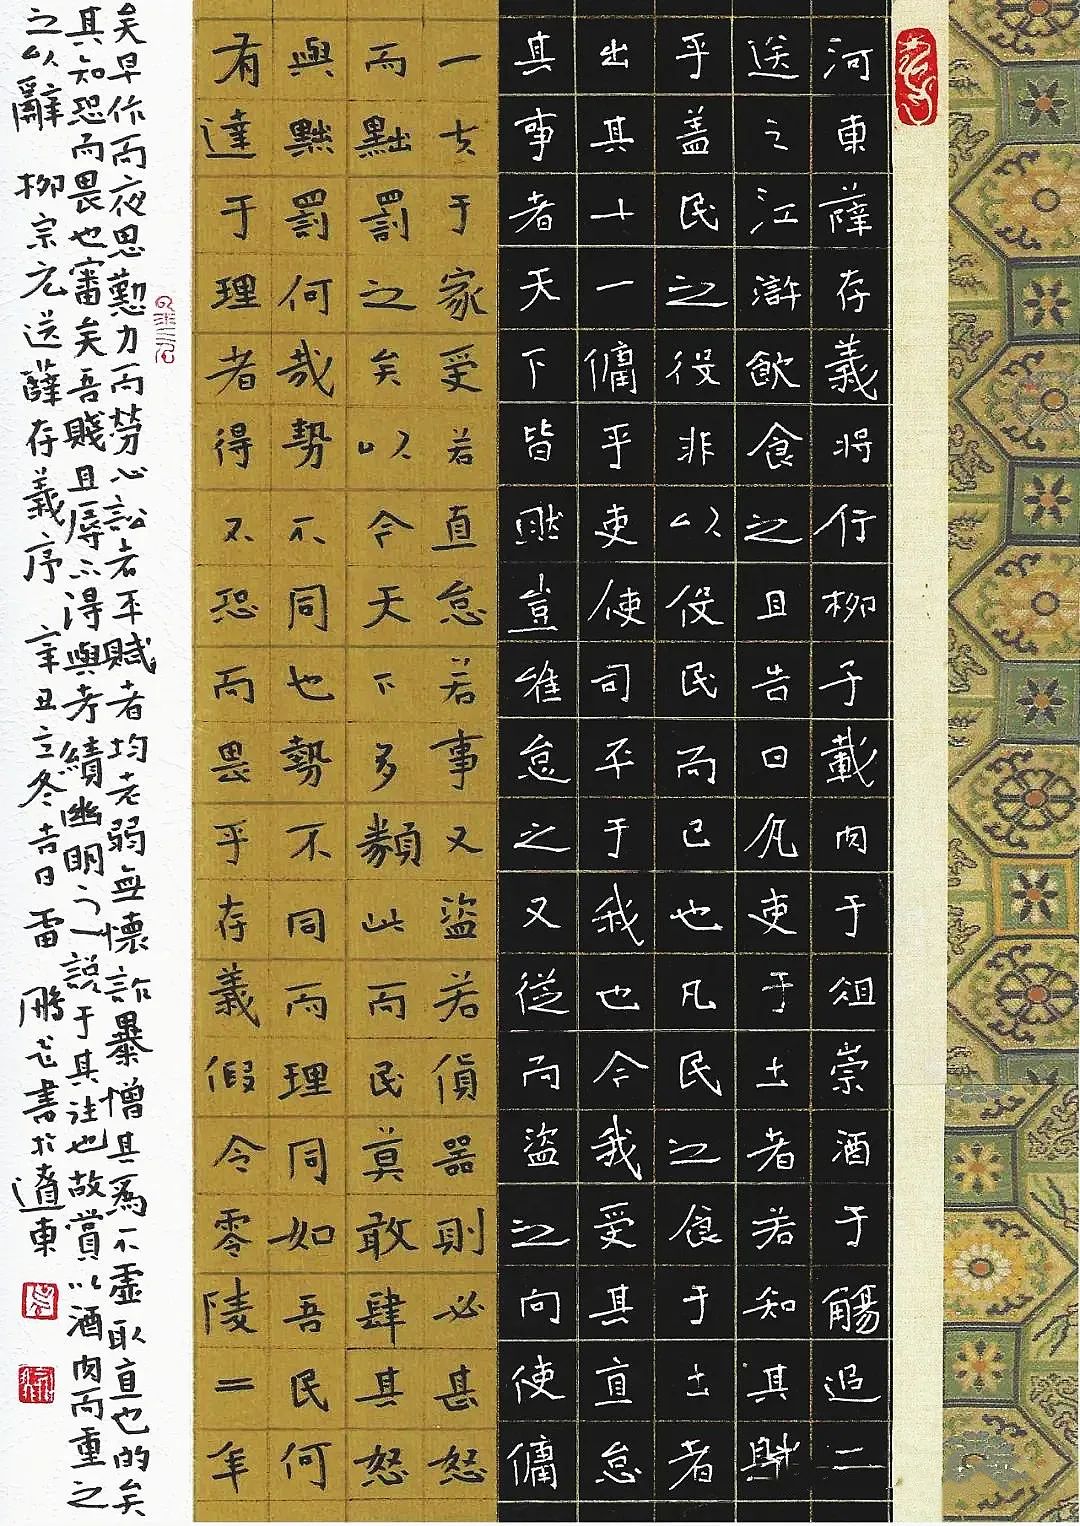 河東薛存義将行柳子載肉于俎崇酒于觴追二
送之江滸飲食之且告曰凡吏于土者若知其職
乎盖民之役非以役民而已也凡民之食于土者
出其十一傭乎吏使司平于我也今我受其直怠
其事者天下皆然豈唯怠之又從而盜之向使傭
一夫于家受若直怠若事又盜若貨器則必甚怒
而黜罰之矣以今天下多類此而民莫敢肆其怒
與黜罰何哉勢不同也勢不同而理同如吾民何
有達于理者得不恐而畏乎存義假令零陵二年
矣早作而夜思勤力而勞心訟者平賦者均老弱無懷詐暴憎其爲不虛取直也的矣
其知恐而畏也審矣吾賤且辱不得與考績幽明之說于其往也故賞以酒肉而重之
之以辭 柳宗元送薛存義序 辛丑立冬吉日雷鵬飞書於遼東